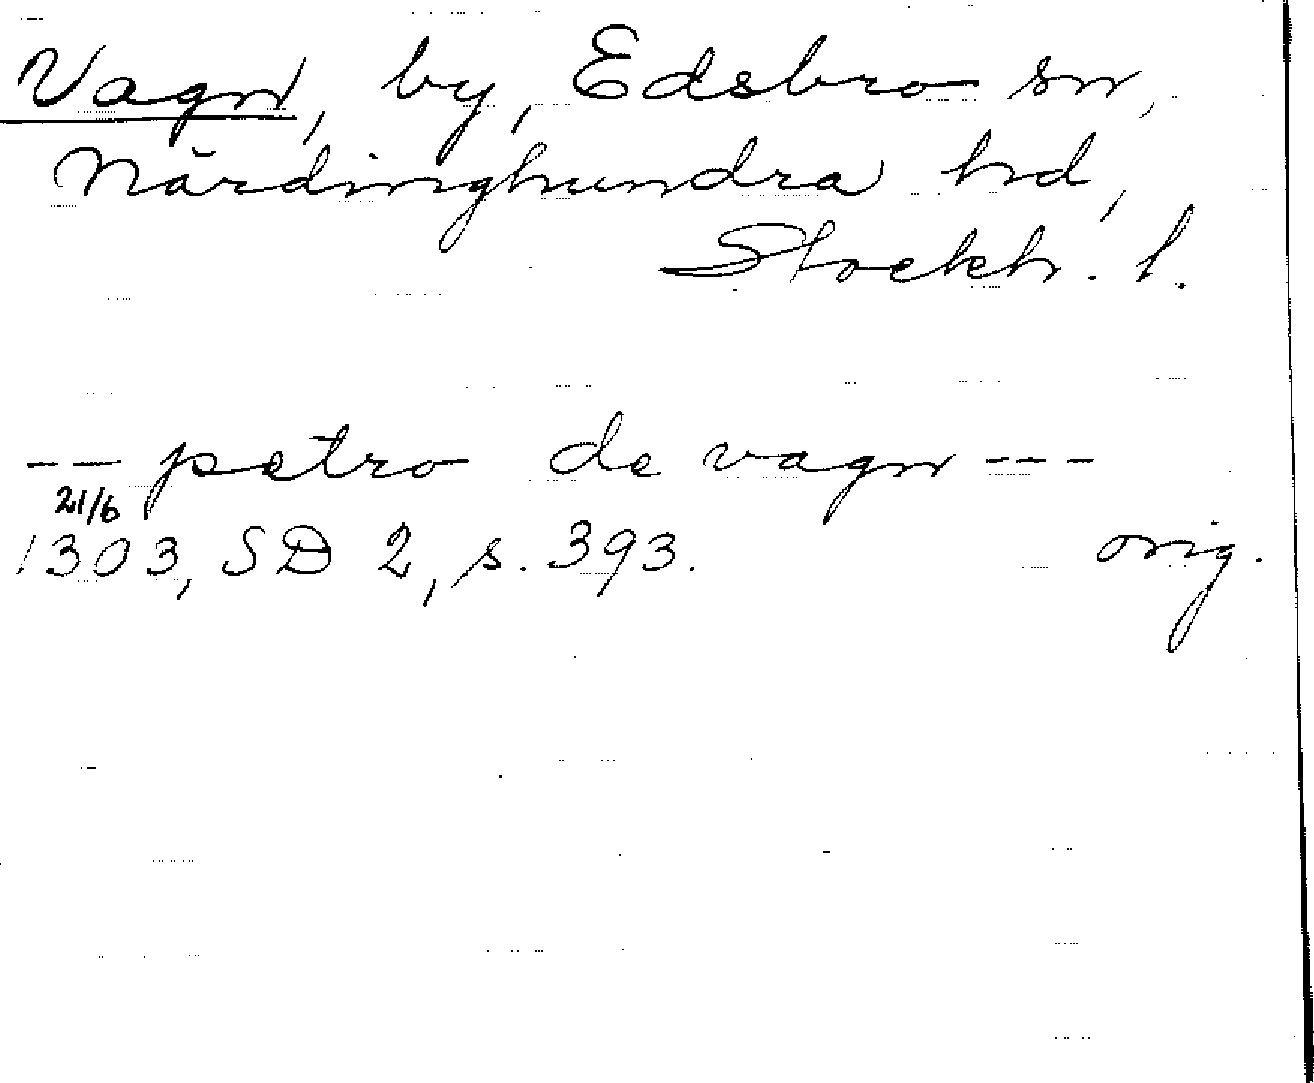 Vagn, by, Edsbro sn,
Närdinghundra hd,
Stockh. l.
-- petro de vagn ---
21/6
1303, SD 2, s. 393. orig.